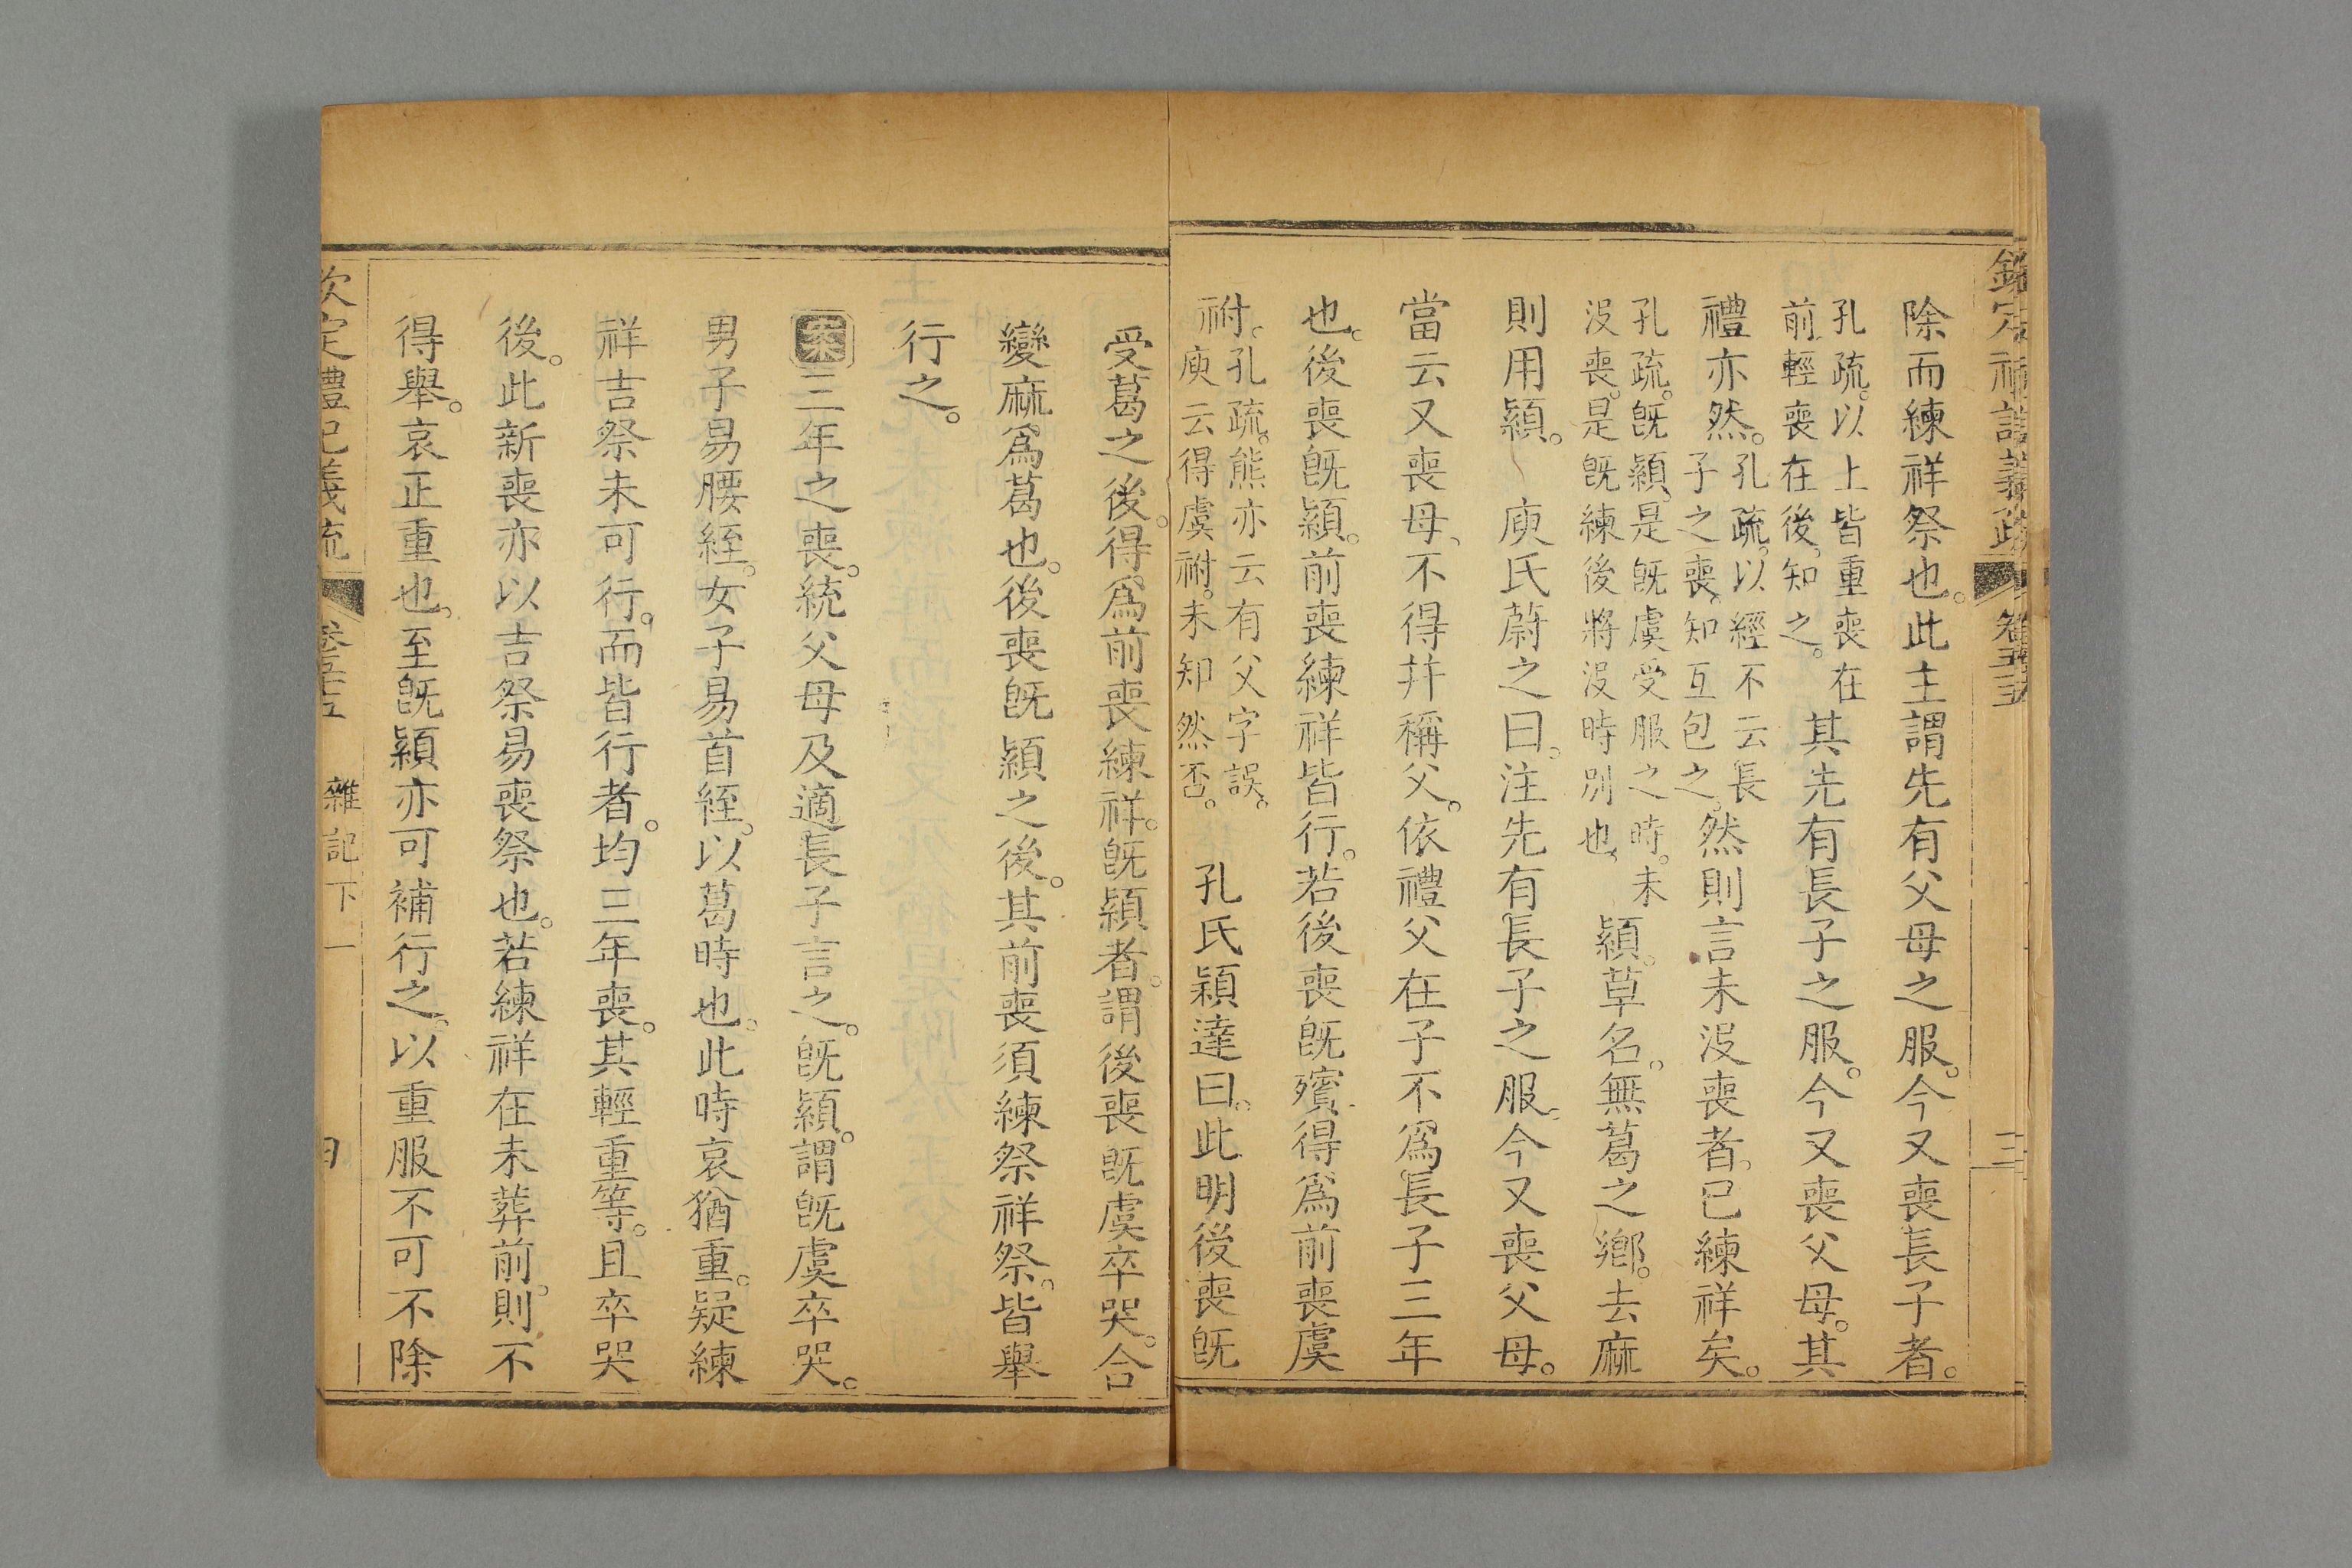 欽定禮記義疏 卷五十五 三
除而練祥祭也。此主謂先有父母之服。今又喪長子者。
孔疏。以上皆重喪在
前。輕喪在後。知之。
其先有長子之服。今又喪父母。其
禮亦然。
孔疏。以經不云長
子之喪。知互包之。
然則言未沒喪者。已練祥矣。
孔疏。旣顈。是旣虞受服之時。未
沒喪。是旣練後將沒時別也。
顈。草名。無葛之鄉。去麻
則用顈。 庾氏蔚之曰。注先有長子之服。今又喪父母。
當云又喪母、不得幷稱父。依禮父在子不爲長子三年
也。後喪旣顈。前喪練祥皆行。若後喪旣殯。得爲前喪虞
祔。
孔疏。熊亦云有父字誤。
庾云得虞祔。未知然否。
孔氏穎達曰。此明後喪旣
受葛之後。得爲前喪練祥。旣顈者。謂後喪旣虞卒哭。合
變麻爲葛也。後喪旣顈之後。其前喪須練祭祥祭。皆舉
行之。
案三年之喪。統父母及適長子言之。旣顈。謂旣虞卒哭。
男子易腰絰。女子易首絰。以葛時也。此時哀猶重。疑練
祥吉祭未可行。而皆行者。均三年喪。其輕重等。且卒哭
後。此新喪亦以吉祭易喪祭也。若練祥在未葬前。則不
得舉。哀正重也。至旣顈亦可補行之。以重服不可不除
欽定禮記義疏 卷五十五 雜記下一 四